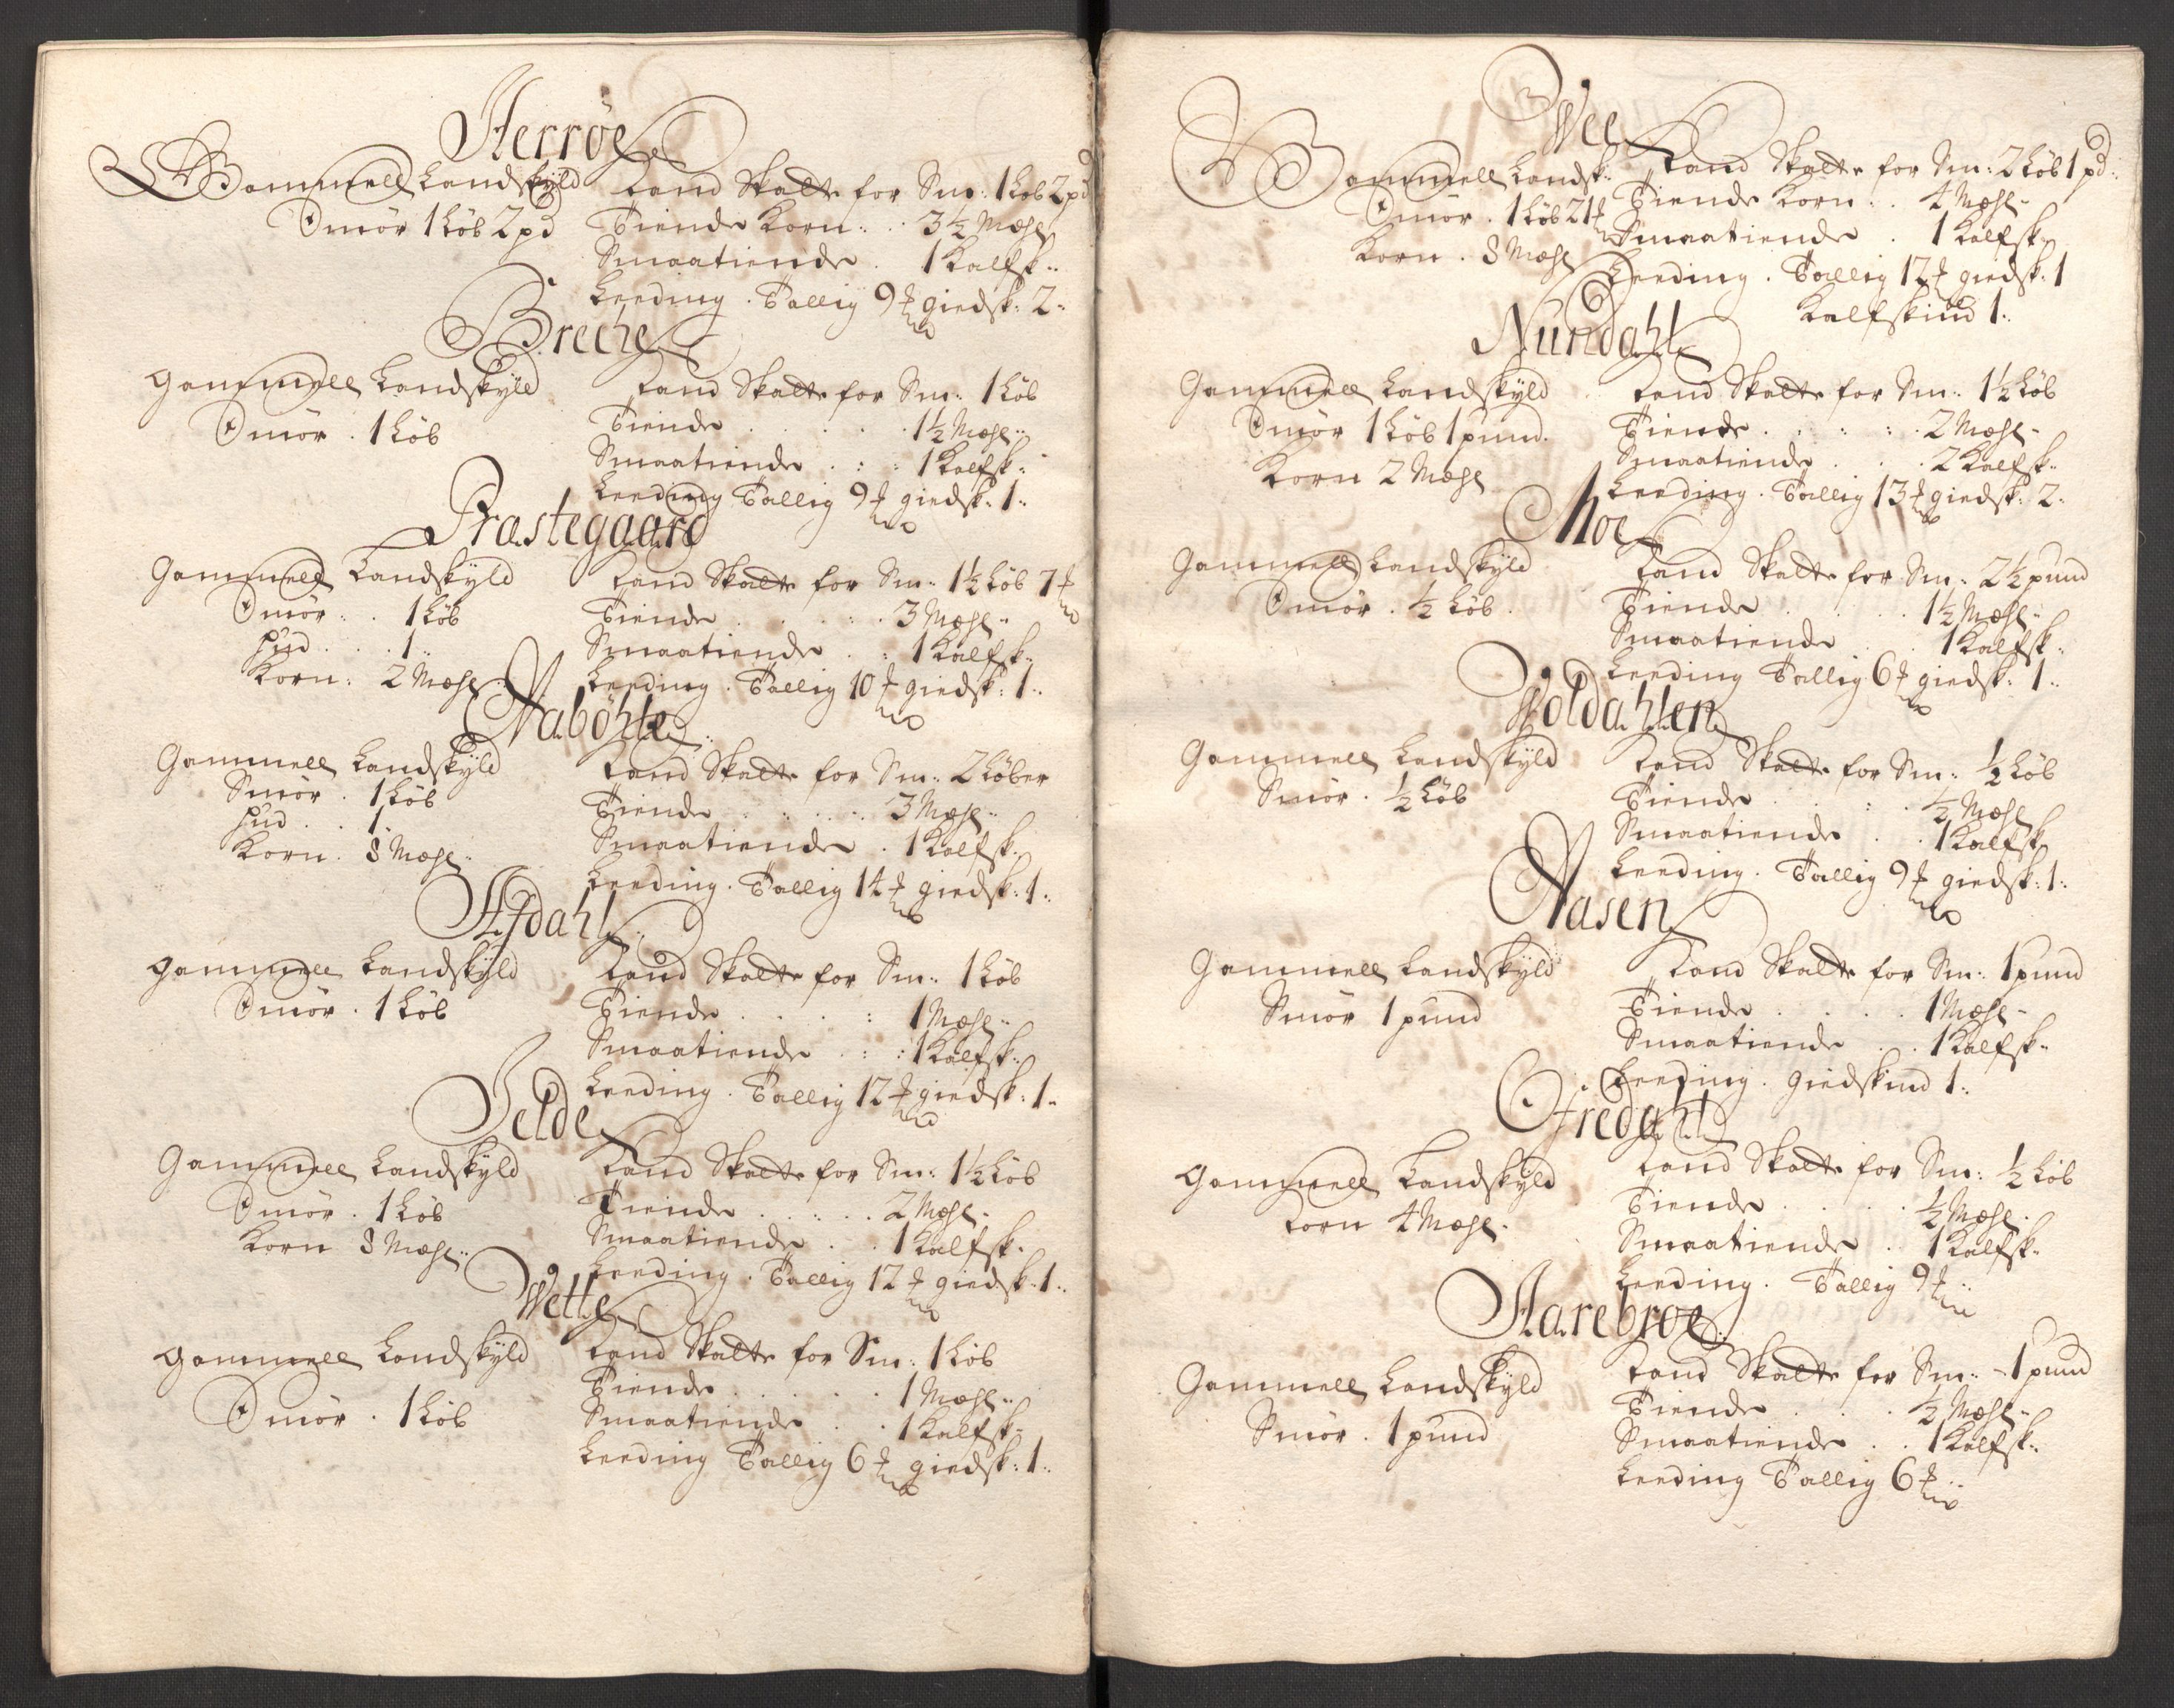 Herrøe
Gammell Landskyld
Smør 1 Løb 2 pd
Land Skatte for Sm: 1 Løb 2 pd
Tiende Korn: . . 3½ Mæhl
Smaatiende . 1 Kalfsk:
Leeding . Tallig 9 ℔ giedsk: 2:
Breche
Gammell Landskyld
Smør . 1 Løb
Land Skatte for Sm: 1 Løb
Tiende . . . . . 1½ Mæhl:
Smaatiende . : : 1 Kalfsk:
Leeding Tallig 9 ℔ giedsk: 1:
Præstegaard
Gammell Landskyld
Smør: . 1 Løb
Hud . . . 1:
Korn: 2 Mæhl
Land Skatte for Sm: 1½ Løb 7 ℔
Tiende . . . . . 3 Mæhl:
Smaatiende . : 1 Kalfsk:
Leeding . Tallig 10 ℔ giedsk: 1:
Nabøhle
Gammell Landskyld
Smør . 1 Løb
Hud . . 1
Korn . 8 Mæhl:
Land Skatte for Sm: 2 Løber
Tiende . . . . . 3 Mæhl:
Smaatiende . 1 Kalfsk:
Leeding . Tallig 14 ℔ giedsk: 1:
Afdahl
Gammell Landskyld
Smør . 1 Løb
Land Skatte for Sm: 1 Løb
Tiende . . . . : 1 Mæhl:
Smaatiende . : : 1 Kalfsk:
Leeding . Tallig 12 ℔ giedsk: 1:
Jelde
Gammell Landskyld
Smør . 1 Løb
Korn 8 Mæhl:
Land Skatte for Sm: 1½ Løb
Tiende . . . . . 2 Mæhl:
Smaatiende . . 1 Kalfsk:
Leeding . Tallig 12 ℔ giedsk: 1:
Wette
Gammell Landskyld
Smør . 1 Løb
Land Skatte for Sm: 1 Løb
Tiende . . . . . 1 Mæhl:
Smaatiende . . 1 Kalfsk:
Leeding Tallig 6 ℔ giedsk: 1:
Wee
Gammell Landsk:
Smør . 1 Løb 21 ℔
Korn . 8 Mæhl
Land Skatte for Sm: 2 Løb 1 pd:
Tiende Korn . . 4 Mæhl
Smaatiende . 1 Kalfsk:
Leeding . Tallig 12 ℔ giedsk: 1
Kalfskind 1:
Nundahl
Gammell Landskyld
Smør 1 Løb 1 pund.
Korn 2 Mæhl
Land Skatte for Sm: 1½ Løb
Tiende . . : : . 2 Mæhl
Smaatiende . . . 2 Kalfsk:
Leeding . Tallig 13 ℔ giedsk: 2:
Moe
Gammell Landskyld
Smør . ½ Løb .
Land Skatte for Sm: 2½ pund
Tiende . . . . . 1½ Mæhl:
Smaatiende . . 1 Kalfsk:
Leeding Tallig 6 ℔ giedsk: 1:
Woldahlen
Gammell Landskyld
Smør . ½ Løb
Land Skatte for Sm: ½ Løb
Tiende . . : . ½ Mæhl
Smaatiende . . 1 Kalfsk
Leeding . Tallig 9 ℔ giedsk: 1:
Aasen
Gammell Landskyld
Smør 1 pund
Land Skatte for Sm: 1 pund
Tiende . . . . . 1 Mæhl
Smaatiende . . 1 Kalfsk:
Leeding . Giedskind 1:
Fredahl
Gammell Landskyld
Korn 4 Mæhl.
Land Skatte for Sm: ½ Løb
Tiende . . . . ½ Mæhl.
Smaatiende . . 1 Kalfsk:
Leeding . Tallig 9 ℔:
Aarebroe
Gammell Landskyld
Smør . 1 pund
Land Skatte for Sm: 1 pund
Tiende . . . . ½ Mæhl
Smaatiende . . 1 Kalfsk:
Leeding Tallig 6 ℔: